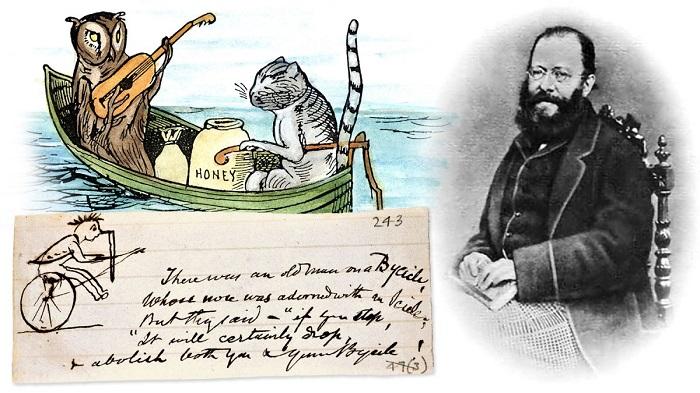 HONEY
243
There was an old man on a Bycicle,
Whose nose was adorned with an Icicle;
But they said – "if you stop,
"It will certainly drop,
& abolish both you & your Bycicle!
44(3)